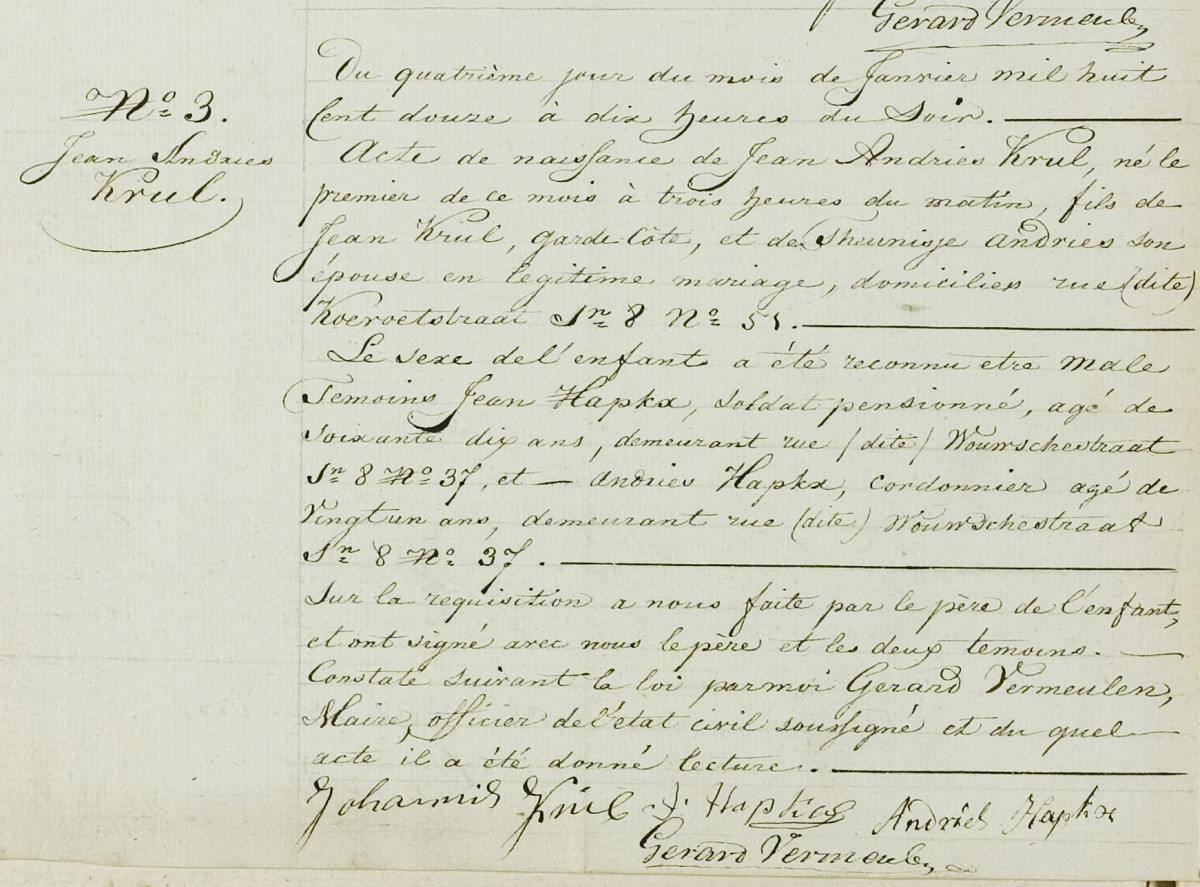 Gerard Vermeulen
Nº 3.
Jean Andries
Krul.
Du quatrième jour du mois de Janvier mil huit
Cent douze à dix heures du Soir.
Acte de naissance de Jean Andries Krul, né le
premier de ce mois à trois heures du matin, fils de
Jean Krul, garde-Côte, et de Theunisje andries son
épouse en legitime mariage, domiciliés rue (dite)
Koevoetstraat Sn 8 Nº 51.
Le sexe de l'enfant a été reconnu etre Male
Temoins Jean Hapkx, Soldat pensionné, agé de
soixante dix ans, demeurant rue (dite) Wouwschestraat
Sn 8 Nº 37, et — Andries Hapkx, Cordonnier agé de
Vingt un ans, demeurant rue (dite) Wouwschestraat
Sn 8 Nº 37.
Sur la requisition a nous faite par le père de l'enfant,
et ont signé avec nous le père et les deux temoins.
Constaté suivant la loi par moi Gerard Vermeulen,
Maire, officier de l'etat civil soussigné et du quel
acte il a été donné lecture.
Johannis Krul J: Hapkx Andries Hapkx
Gerard Vermeulen